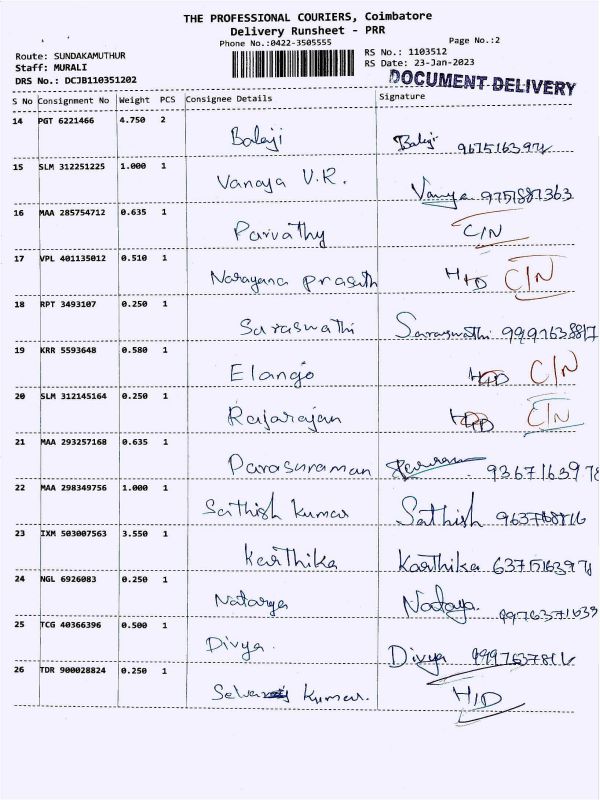 THE PROFESSIONAL COURIERS, Coimbatore
Delivery Runsheet - PRR
Phone No.:0422-3505555
Page No.:2
Route: SUNDAKAMUTHUR
RS No.: 1103512
Staff: MURALI
RS Date: 23-Jan-2023
DRS No.: DCJB110351202
DOCUMENT DELIVERY
S No Consignment No Weight PCS Consignee Details Signature
14 PGT 6221466 4.750 2 Balaji Balaji
15 SLM 312251225 1.000 1 Vanaya V.R. Vanya 9751887363
16 MAA 285754712 0.635 1 Parvathy C/N
17 VPL 401135012 0.510 1 Narayana prasath C/N
18 RPT 3493107 0.250 1 Saraswathi Saraswathi
19 KRR 5593648 0.580 1 Elango C/N
20 SLM 312145164 0.250 1 Rajarajan C/N
21 MAA 293257168 0.635 1 Parasuraman
22 MAA 298349756 1.000 1 Sathish Kumar Sathish
23 IXM 503007563 3.550 1 Karthika Karthika
24 NGL 6926083 0.250 1
25 TCG 40366396 0.500 1 Divya. Divya
26 TDR 900028824 0.250 1 Kumar. H/D